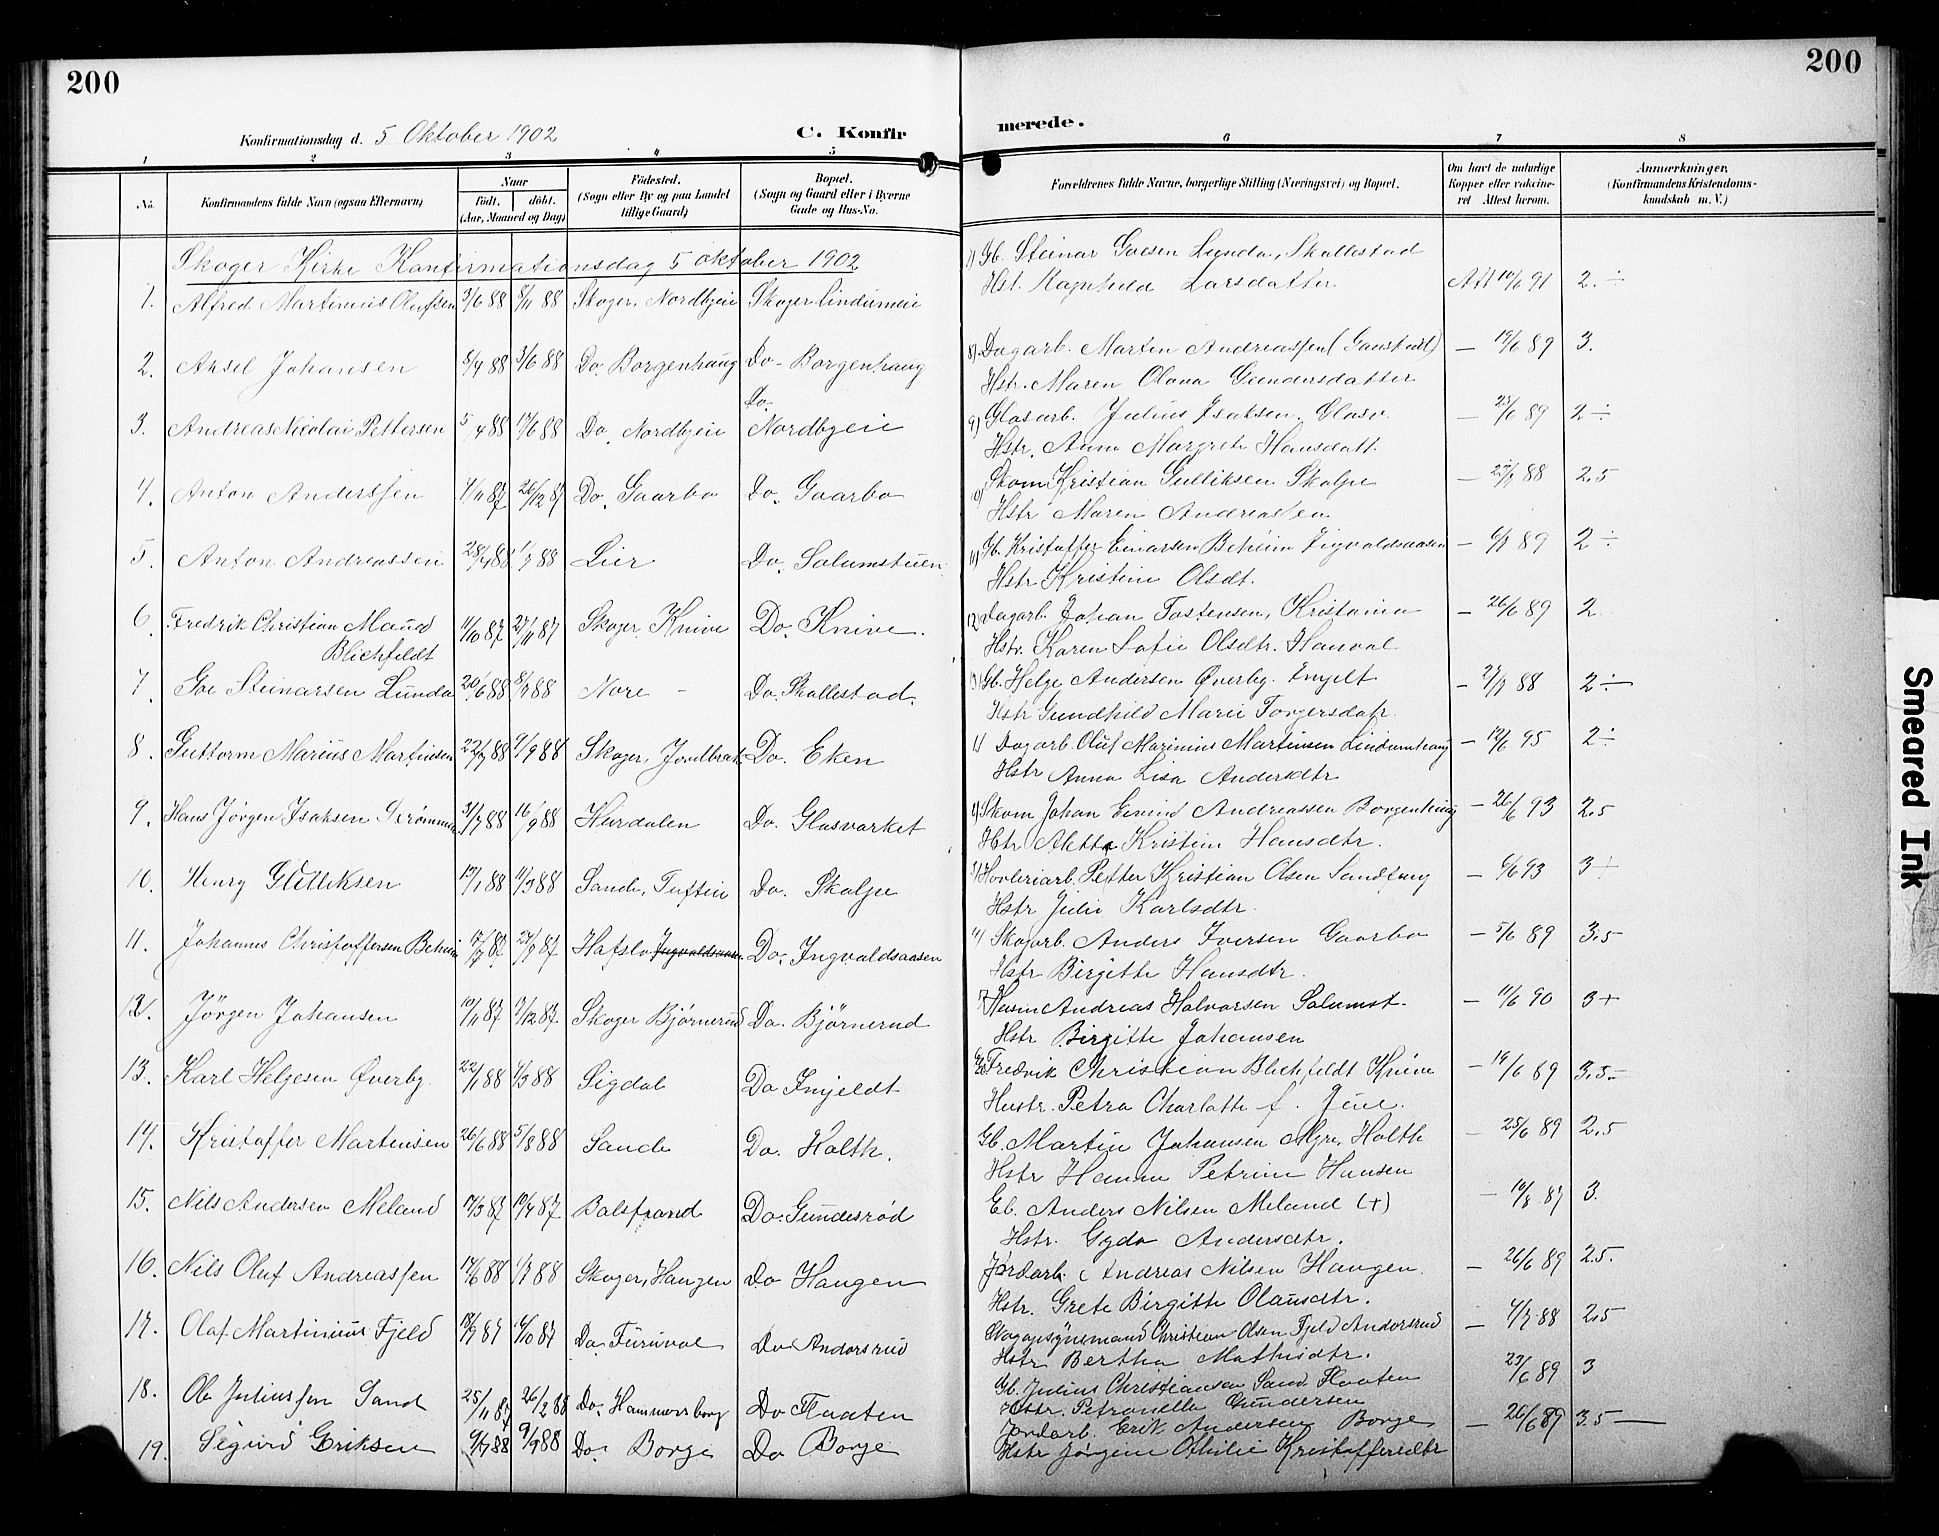 200
200
Konfirmationsdag d. 5 Oktober 1902
C. Konfir
merede.
1 2 3 4 5 6 7 8
No.
Konfirmandens fulde Navn (ogsaa Efternavn)
Naar
født. døbt.
(Aar, Maaned og Dag)
Fødested.
(Sogn eller By og paa Landet
tillige Gaard)
Bopæl.
(Sogn og Gaard eller i Byerne
Gade og Hus-No.
Forældrenes fulde Navne, borgerlige Stilling (Næringsvei) og Bopæl.
Om havt de naturlige
Kopper eller vaccine-
ret Attest herom.
Anmærkninger.
(Konfirmandens Kristendoms-
kundskab m. V.)
Skoger Kirke Konfirmationsdag 5 oktober 1902
1. Alfred Martinius Olufsen 3/6 88 8/11 88 Skoger, Nordbyeie Skoger
2. Aksel Johansen 5/4 88 3/6 88 Do Borgenhaug Do - Borgenhaug
3. Andreas Nicolai Pettersen 5/4 88 17/6 88 Do, Nordbyeie Do. Nordbyeie
4. Anton Anderssen 4/11 87 26/12 87 Do, Gaarbo Do, Gaarbo
5. Anton Andreassen 28/4 88 1/7 88 Lier Do, Solumstuen
6. Fredrik Christian Maurd
Blichfeldt 11/10 87 27/11 87 Skoger, Knive Do. Knive.
7. Goe Steinarsen Lunda 20/6 88 8/7 88 Nore - Do. Skallestad.
8. Guttorm Marius Martinsen 22/7 88 9/9 88 Skoger, Do. Eken
9. Hans Jørgen Isaksen Strømmen 31/7 88 16/9 88 Hurdalen Do. Glasværket
10. Henry Gulliksen 13/1 88 11/3 88 Sande, Tuftin Do. Skalpe
11. Johannes Christoffersen Beheim 24/7 87 Hafslo Ingvaldsaasen Do. Ingvaldsaasen
12. Jørgen Johansen 10/11 87 Skoger Bjørnerud Do. Bjørnerud
13. Karl Helgesen Øverby 22/1 88 4/3 88 Sigdal Do Injeldt
14. Kristoffer Martinsen 26/6 88 5/8 88 Sande Do. Holth.
15. Nils Andersen Meland 17/3 87 10/4 87 Balstrand Do. Gundesrød
16. Nils Oluf Andreassen 14/6 88 1/7 88 Skoger, Haugen Do Haugen
17. Olaf Martinius Fjeld 18/9 87 16/10 87 Do. Furuval Do Andorsrud
18. Ole Juliussen Sand 25/11 87 26/2 88 Do. Hammersborg Do Flaaten
19. Sigurd Eriksen 9/7 88 9/9 88 Do. Borge Do Borge
7) Gb. Steinar Goesen Lunda, Skallestad
Hst. Ragnhild Larsdatter Att 10/6 91 2.÷
8) Dagarb. Martin Andreassen (Gaustad) — 19/6 89 3.
Hstr. Maren Olava Gundersdatter
9) Glasarb. Julius Isaksen. Glasv. — 25/6 89 2÷
Hstr. Anna Margrete Hansdatt.
10) Skom Kristian Gulliksen Skalpe — 88 2,5
Hstr Maren Andreassen
11) Gb. Kristoffer Einarsen Beheim Ingvaldsaasen — 6/7 89 2÷
Hstr Kristine Olsdt.
12) Dagarb. Johan Tostensen, Kristania — 26/6 89 2
Hstr. Karen Sofie Olsdtr.
13) Gb. Helge Andersen Øverby. Injelt — 27/7 88 2÷
Hstr Gundhild Marie Torgersdatr.
1) Dagarb. Oluf Marinius Martinsen Lindumhaug — 12/6 95 2÷
Hstr Anna Lisa Andersdtr
2) Skom Johan Eivind Andreassen Borgenhaug — 26/6 93 2,5
Hstr Alette Kristine Hansdtr.
3) Høvleriarb. Petter Kristian Olsen Sandtung — 6/6 93 3+
Hstr Julie Karlsdtr.
4) Skogarb. Anders Iversen Gaarbo — 5/6 89 3,5
Hstr Birgitte Hansdtr.
5) Husm Andreas Halvorsen Solumst. — 11/6 90 3+
Hstr Birgitte Johansen
6) Gb Fredrik Christian Blichfeldt Knive — 19/6 89 3,5-
Hustr. Petra Charlotte f. Juul.
Gb. Martin Johansen Myre, Holth — 25/6 89 2,5
Hstr Hanna Petrine Hansen
Gb. Anders Nilsen Meland (+) — 10/8 87 3.
Hstr. Gyda Andersdtr.
Jordarb. Andreas Nilsen Haugen. — 26/6 89 2.5.
Hstr. Grete Birgitte Olausdtr.
Skogopsynsmand Christian Olsen Fjeld Andorsrud — 4/7 88 2,5
Hstr Bertha Mathisdtr.
Gb. Julius Christiansen Sand Flaaten 23/6 89 3
Hstr. Petronelle Gundersen
Jordarb. Erik Andersen Borge — 26/6 89 3.5 —
Hstr Jørgine Othilie Kristoffersdtr
Smeared Ink